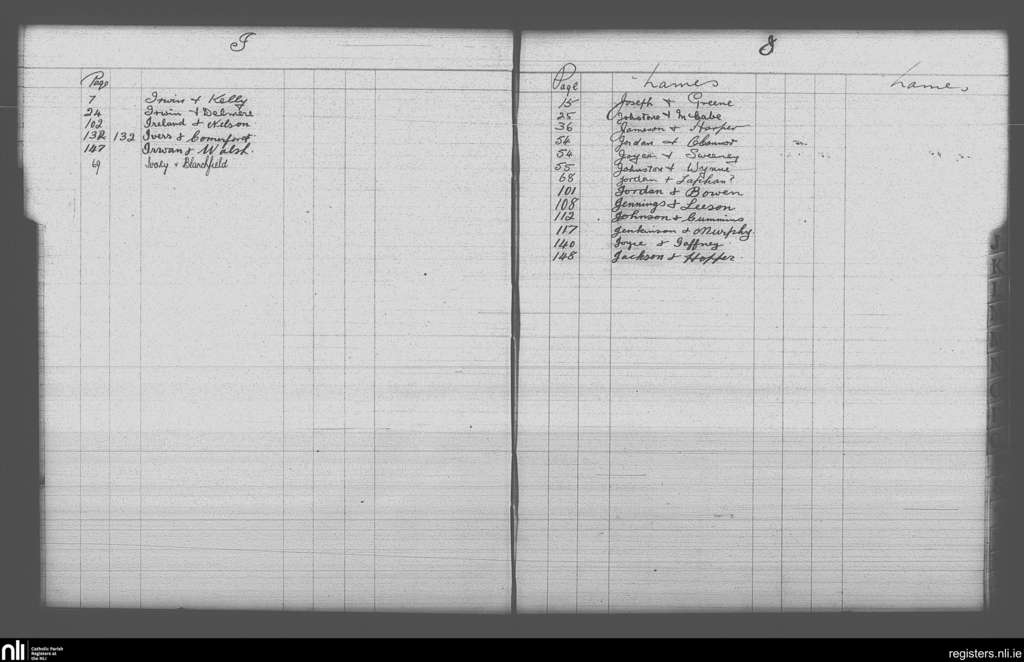 I
Page
7 Irwin & Kelly
24 Irwin & Delmere
102 Ireland & Nelson
132 132 Ivers & Comerford
147 Irwan & Walsh.
69 Ivory & Blanchfield
J
Page Names Name
15 Joseph & Greene
25 Johstone & McCabe
36 Jameson & Harper
54 Jordan & Connor
54 Joyce & Sweeney
55 Johnstone & Wynne
68 Jordan &
101 Jordan & Bowen
108 Jennings & Leeson
112 Johnson & Cummins
117 Jenkinson & Murphy.
140 Joyce & Gaffney
148 Jackson & Hopper.
nli Catholic Parish
Registers at
the NLI
registers.nli.ie